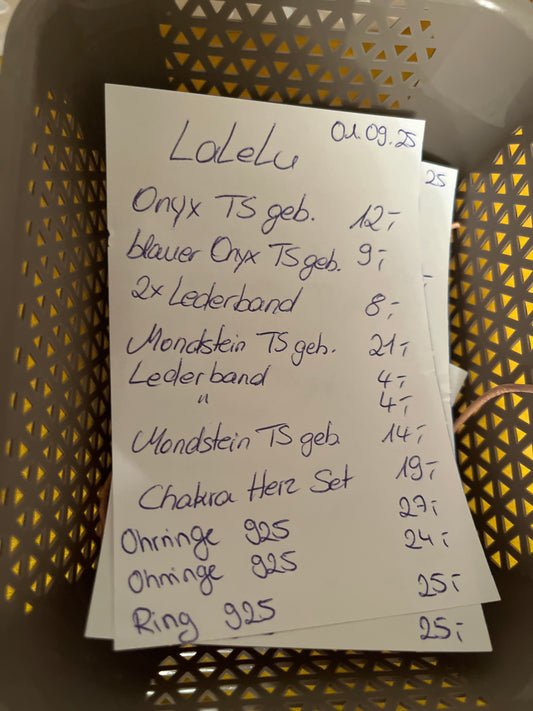 LaLeLu 01.09.25
Onyx TS geb. 12,-
blauer Onyx TS geb. 9,-
2x Lederband 8,-
Mondstein TS geb. 21,-
Lederband 4,-
" 4,-
Mondstein TS geb 14,-
Chakra Herz Set 19,-
Ohrringe 925 27,-
Ohrringe 925 24,-
Ring 925 25,-
25
25,-